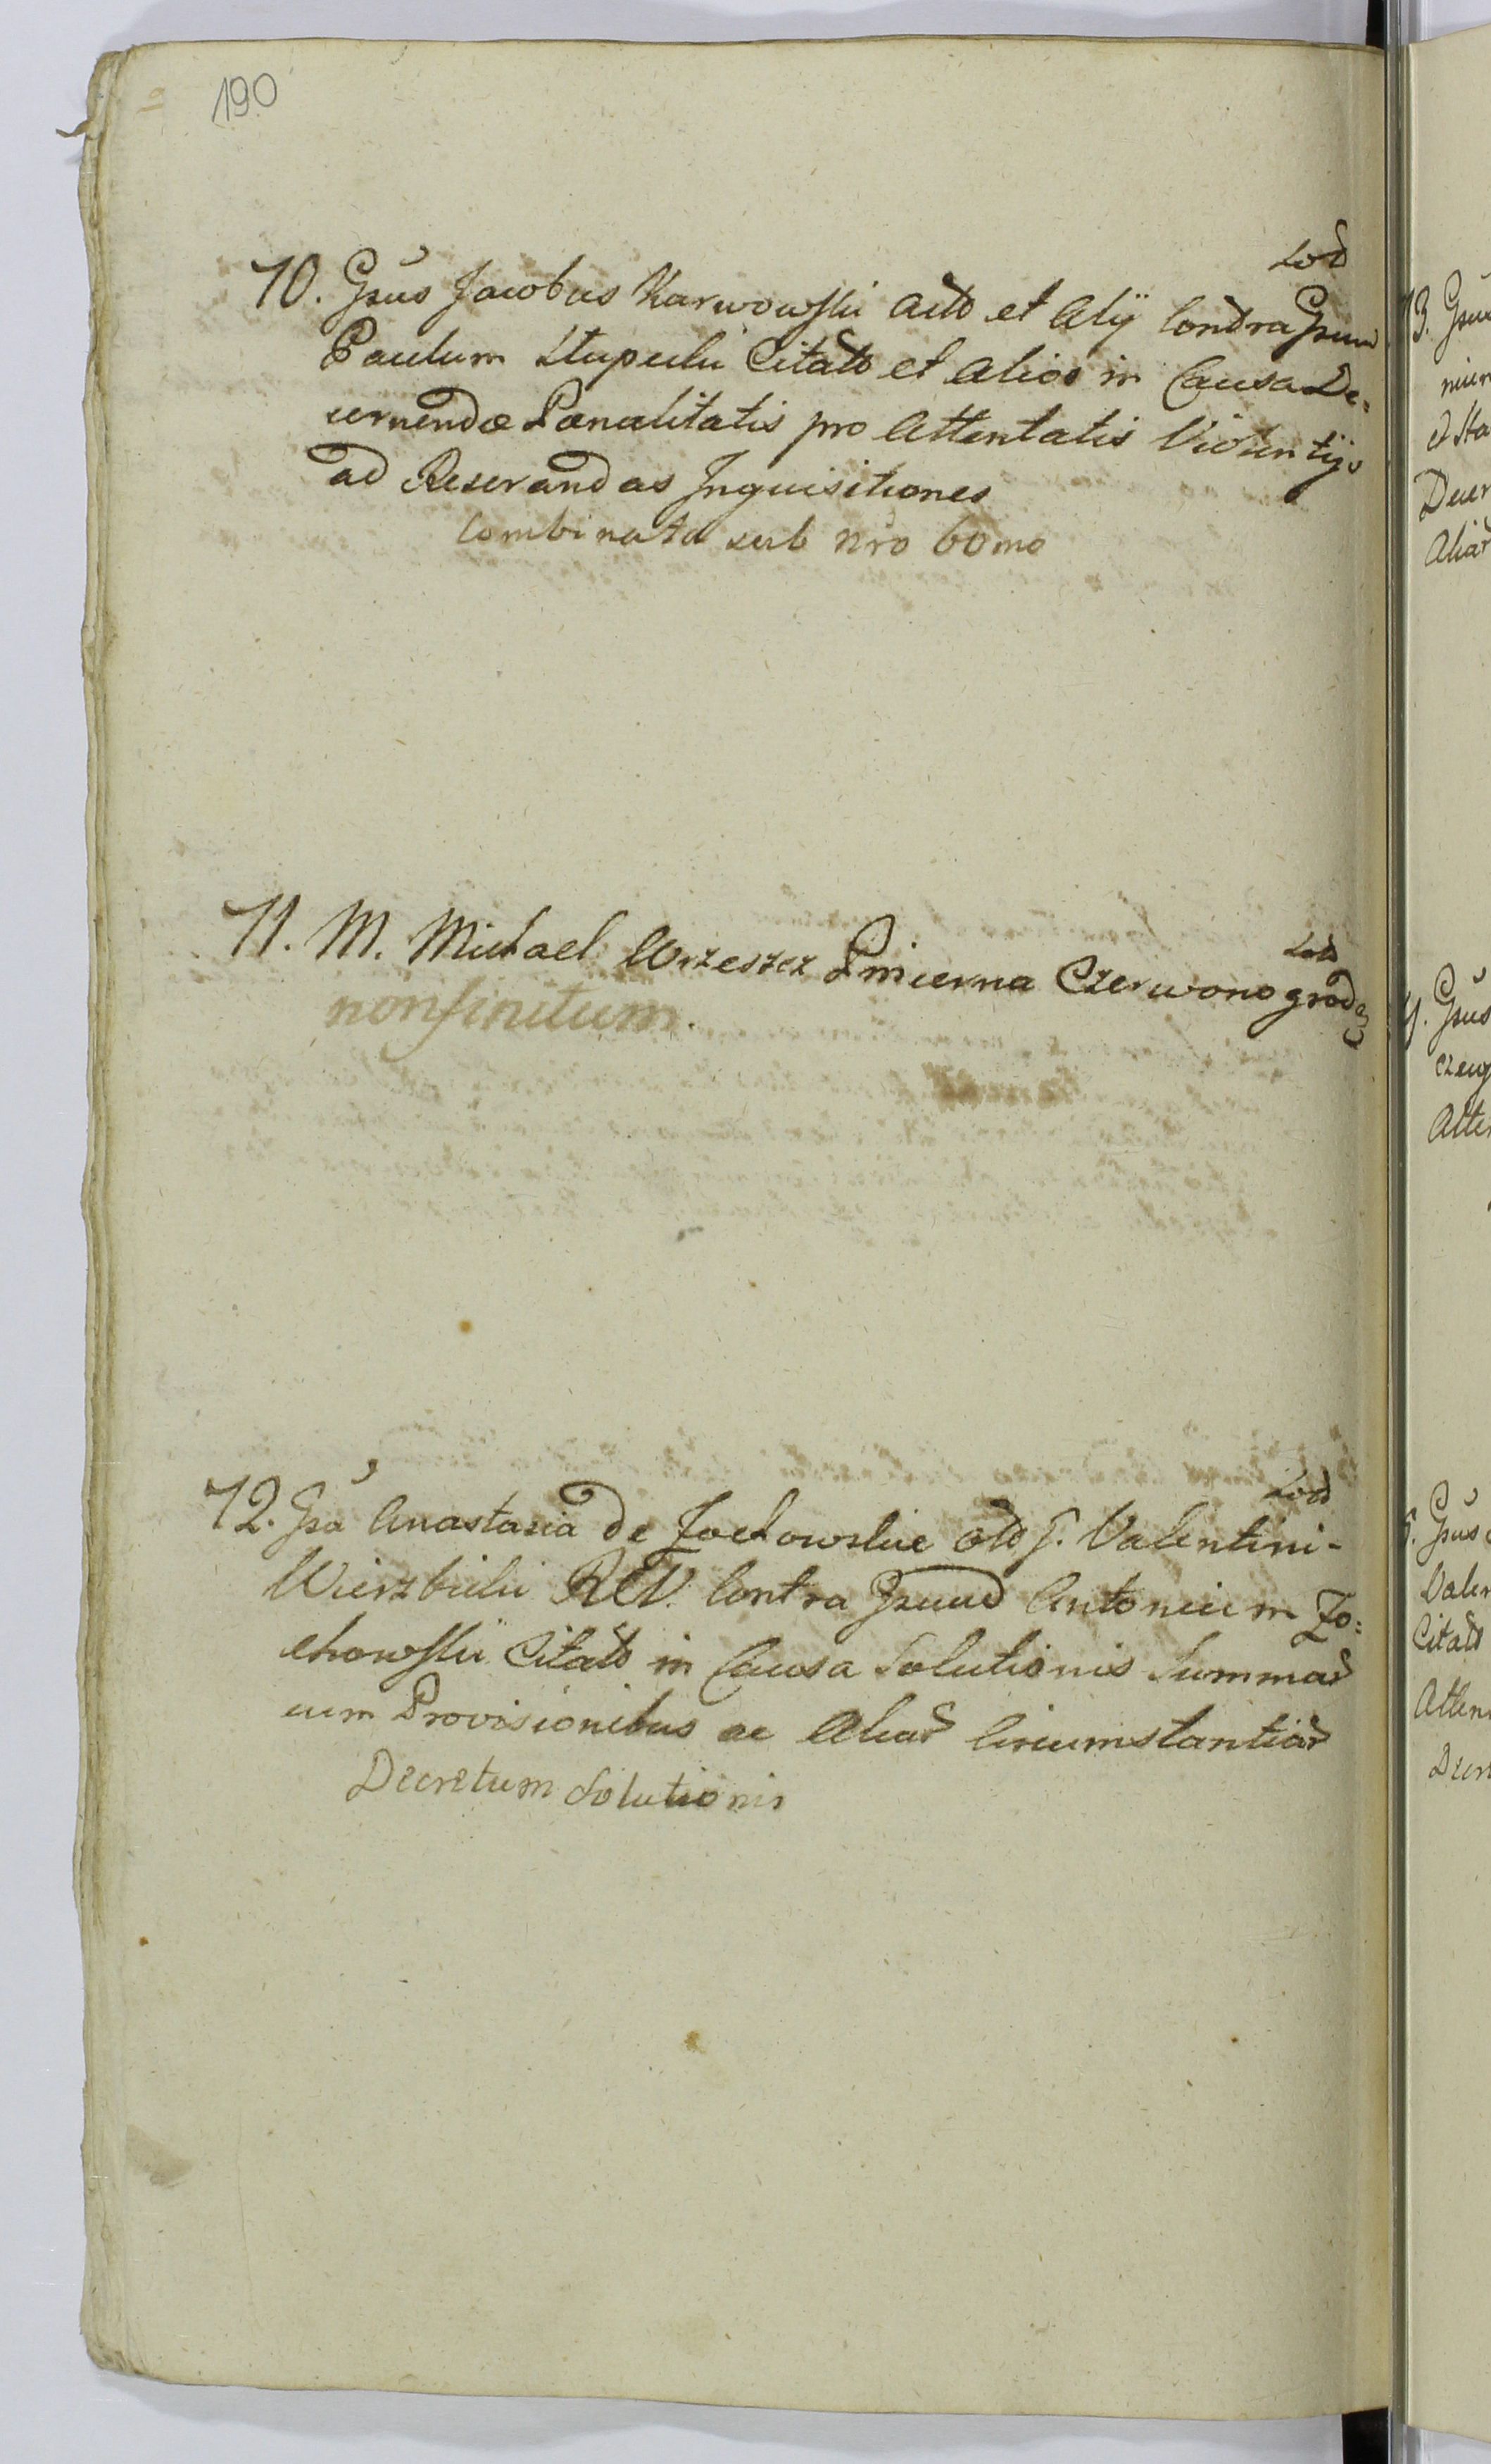 190
Lod
70. Gsus Jacobus Karwowski Acto et Alij Contra Gsum
Paulum Stupecki Citato et Alios in Causa De=
cernendæ Pœnalitatis pro Attentatis Violentijs
ad Reserandas Inquisitiones
Combinata sub Nro 60mo
Lod
71. M. Michael Wrzeszcz Pincerna Czerwonogrod
nonfinitum.
Lod
72. Gsa Anastasia de Zochowskie olo G. Valentini-
Wierzbicki RCV. Contra Gsum Antonium Zo=
chowski Citato in Causa Solutionis Summar
cum Provisionibus ac Aliar Circumstantiar
Decretum Solutionis
73. Gsu
et Sta
Decr
Aliar
Gsus
Atte
Gsus
Valen
Citato
Atten
Decr